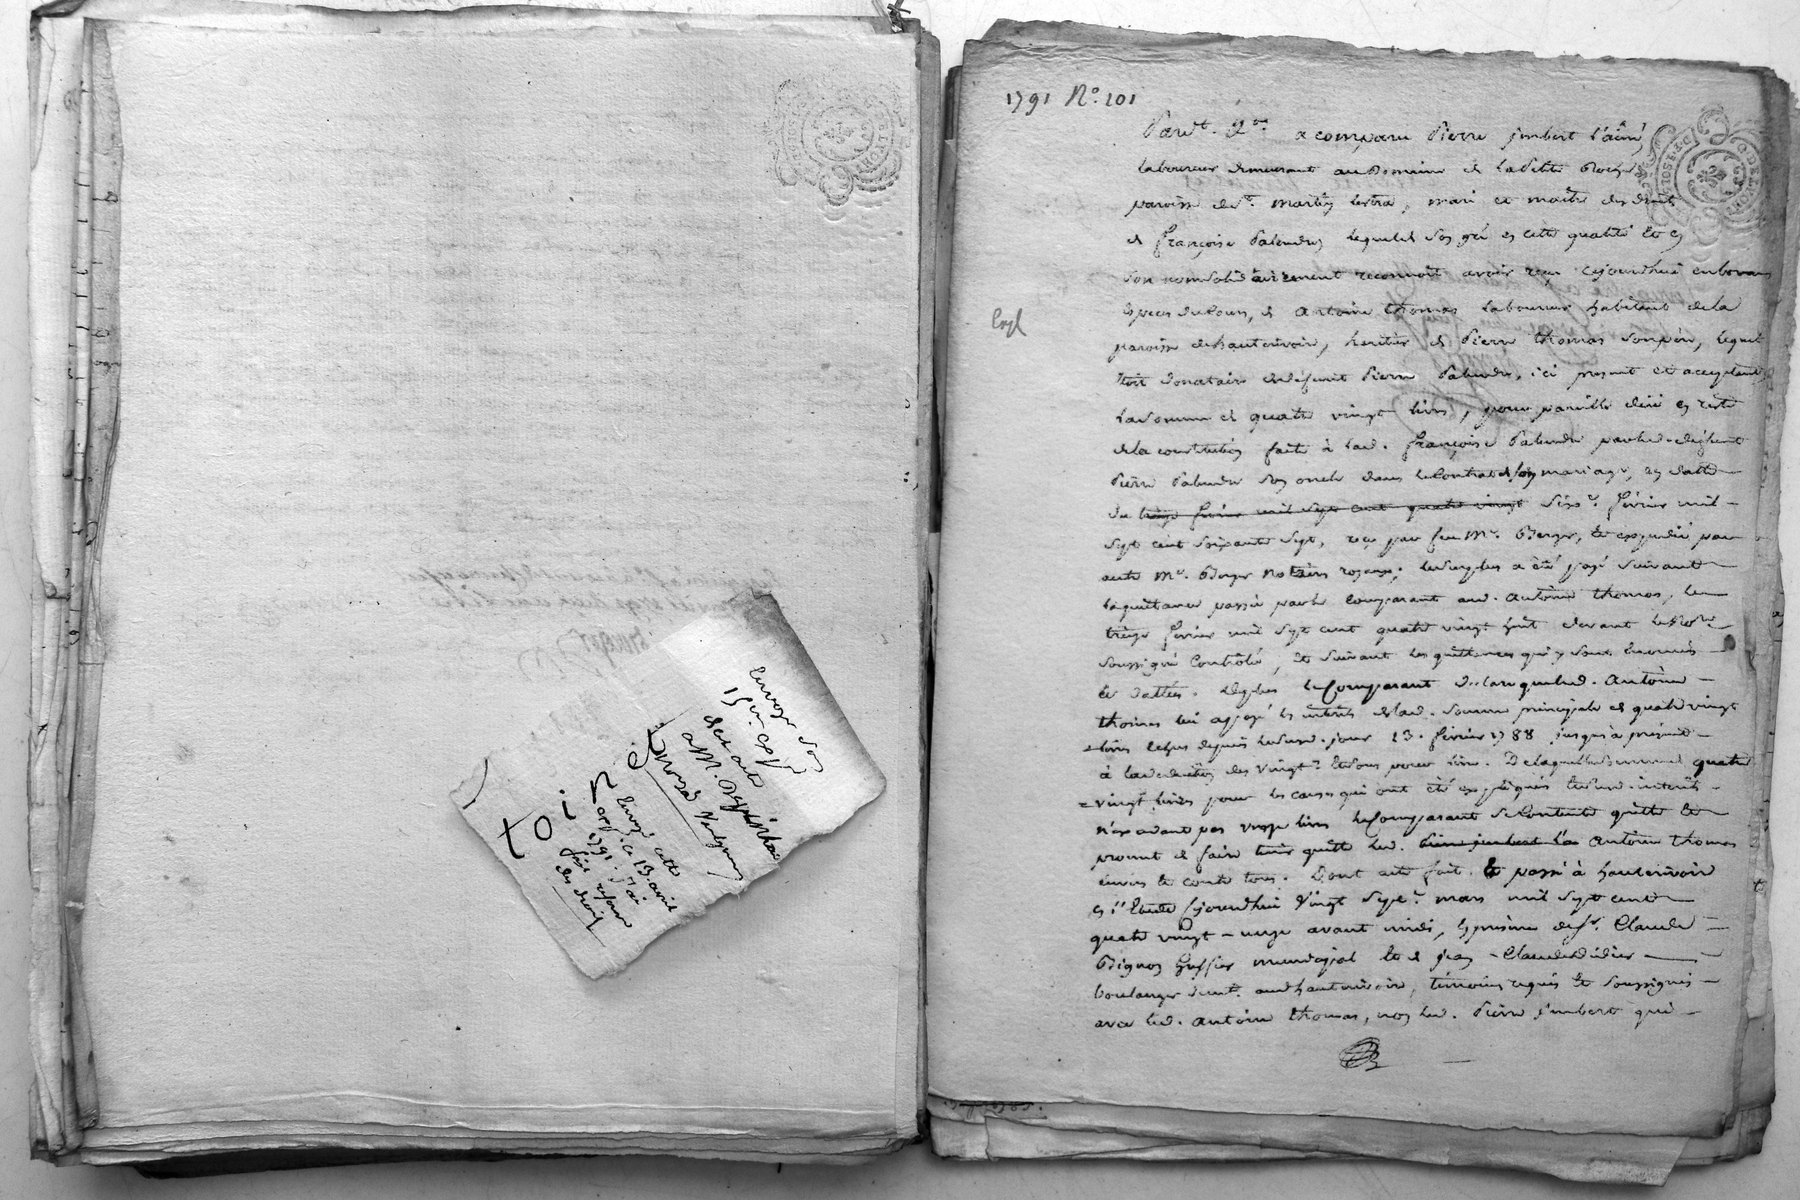 1791 N.° 101
Pard.t N.re a comparu Pierre jmbert l'ainé
laboureur demeurant au Domaine de la petite Roche
paroisse de S.t Martin lestra, mari et maitre des droits
de françoise Palendru lequel de son gré en cette qualité et en
son nom solidairement reconnoit avoir reçu cejourdhui en bonnes
Expl
especes de cours, de Antoine thomas laboureur habitant de la
paroisse de hauterivoir, heritier de Pierre thomas son pere, lequel
etoit donataire de defunt Pierre Palendru, ici present et acceptant
la somme de quatre vingt livres, pour pareille due en reste
de la constitution faite à lad. françoise Palendru par led. defunt
Pierre Palendru son oncle dans le Contrat de son mariage, en datte
du treize fevrier mil sept cent quatre vingt dix.e fevrier mil
sept cent soixante sept, reçu par feu M.e Berger, et expedié par
autre M.e Berger Notaire royaux; le surplus a été payé suivant
la quittance passée par le comparant aud. Antoine thomas, le
treize fevrier mil sept cent quatre vingt huit devant le No.re
soussigné Contrôlé, et suivant les quittances qui y sont enoncées
et dattées. De plus le Comparant declare que led. Antoine
thomas lui a payé les interets de lad. somme principale de quatre vingt
livres echus depuis led. jour 13. fevrier 1788 jusqu'à present
à la deduction des vingt.e et sous pour livre. De laquelle somme de quatre
vingt livres pour les causes qui ont été expliquées et desd. interets
n'excedant pas vingt livres le Comparant se contente quitte et
promet de faire tenir quitte led. Pierre jmbert l'a Antoine thomas
envers et contre tous. Dont acte fait et passé à hauterivoir
en l'Etude Cejourdhui Vingt Sept.e mars mil sept cent
quatre vingt-onze avant midi, en presence de S.r Claude
Bignon Greffier municipal et de jean-Claude Didier
boulanger dem.t aud. hauterivoir, temoins requis et soussignés
avec led. Antoine thomas, non led. Pierre jmbert qui
Envoyé son
expl.
des acte
a M.
Envoyé cette
exp. ce 13. avril
1791. J'ai
fait
des droits